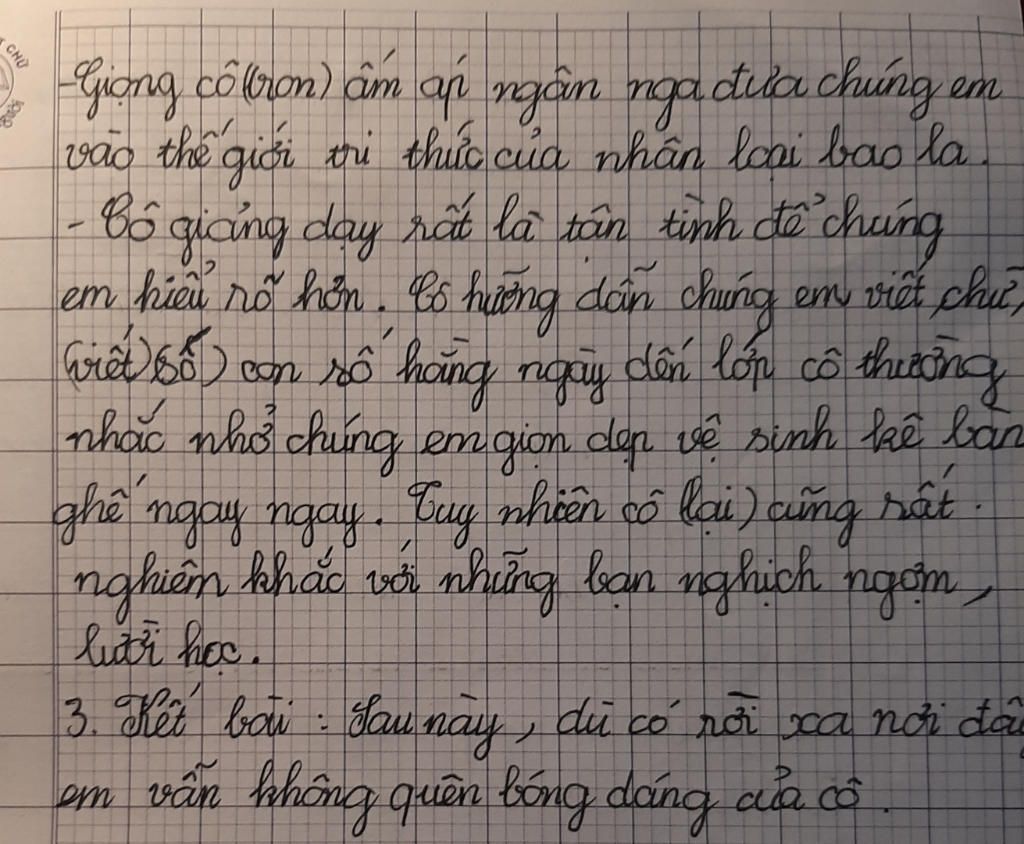 CHỮ
-Giọng cô (ron) ấm áp ngân nga đưa chúng em
vào thế giới tri thức của nhân loại bao la.
- Cô giảng dạy rất là tận tình để chúng
em hiểu rõ hơn. Cô hướng dẫn chúng em viết chữ,
(viết) (số) con số hằng ngày đến lớp cô thường
nhắc nhở chúng em gọn dẹp vệ sinh kê bàn
ghế ngay ngay. Tuy nhiên cô (lại) cũng rất
nghiêm khắc với những bạn nghịch ngợm,
lười học.
3. Kết bài: Sau này, dù có rời xa nơi đây
em vẫn không quên bóng dáng của cô.